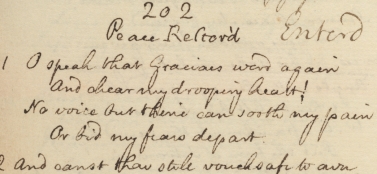 202
Peace Restor'd Enterd
1 O speak that Gracious word again
And chear my drooping heart!
No voice but thine can sooth my pain
Or bid my fears depart.
2 And canst thou still vouchsafe to own